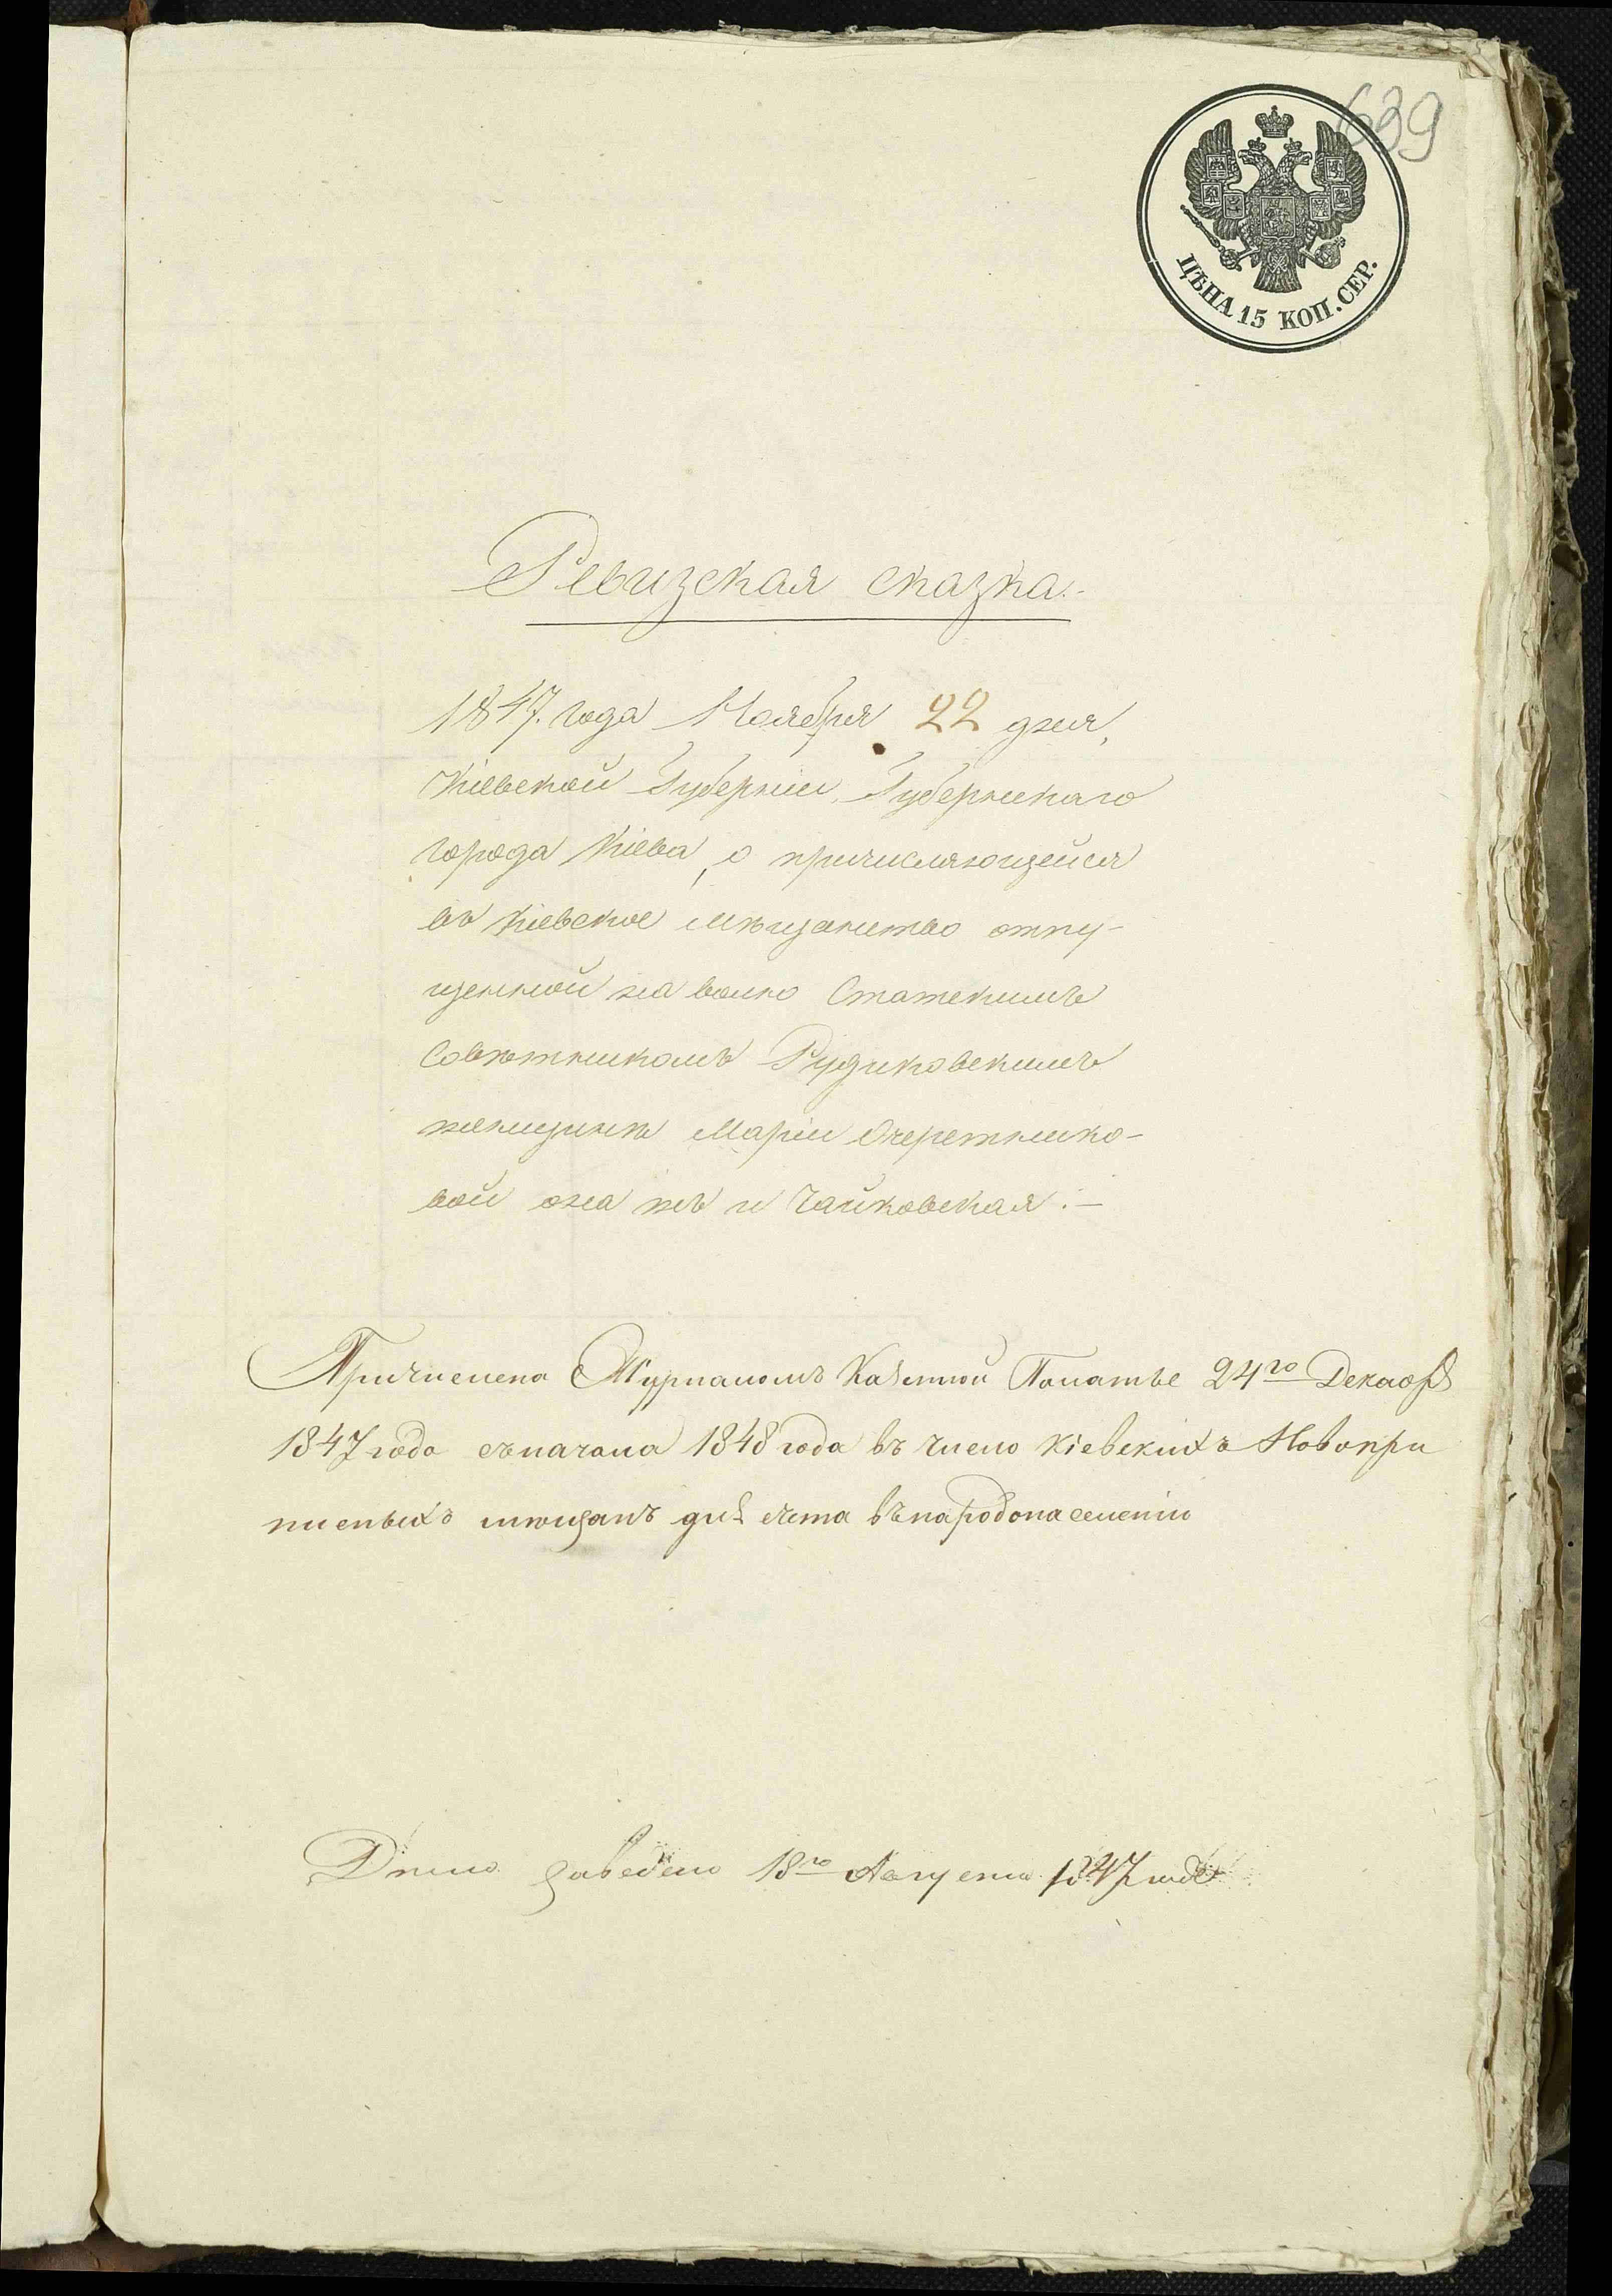 639
ЦѢНА 15 КОП. СЕР.
Ревизская сказка.-
1847. года Ноября 22 дня,
Кіевской Губерніи, Губернскаго
города Кіева, о причисляющейся
въ Кіевское мѣщанство отпу-
щенной на волю Статскимъ
Совѣтникомъ Рудиковскимъ
женщинѣ Маріи Очеретнико-
вой она жъ и Чайковская:-
Причислена Журналомъ Казенной Палаты 24го Декабря
1847 года съ начала 1848 года въ число Кіевскихъ Новопри
писныхъ мѣщанъ для счета въ народонаселенію
Дѣло заведено 18го Августа 1847 года